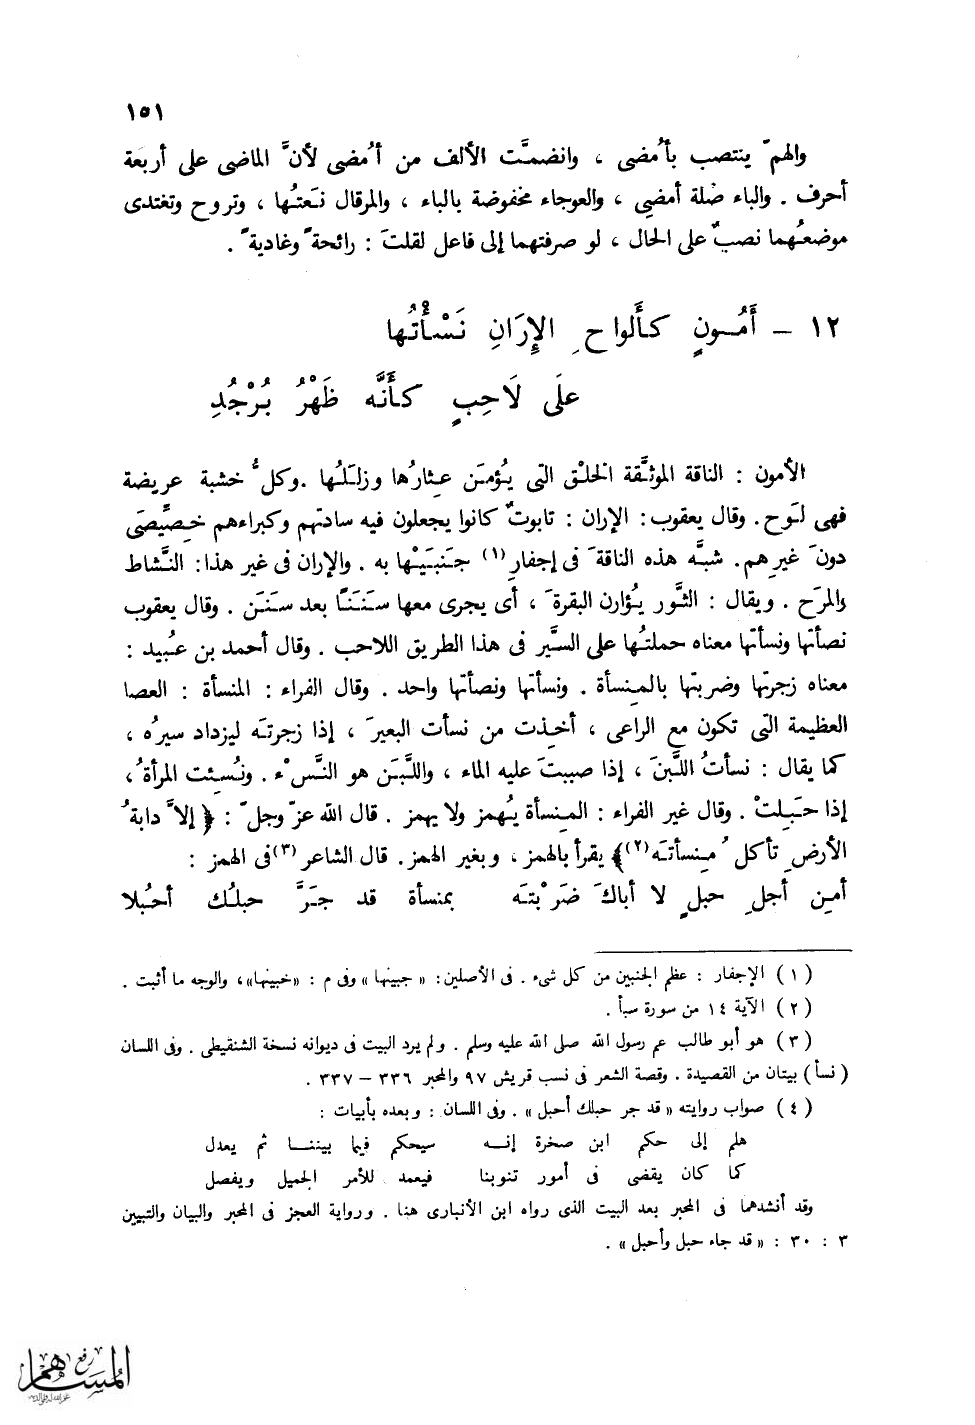 ١٥١
والهمّ ينتصب بأُمضى ، وانضمَّت الألف من أُمضى لأنَّ الماضى على أربعة
أحرف . والباء صلة أمضِى ، والعوجاء مخفوضة بالباء ، والمرقال نَعتُها ، وتروح وتغتدى
موضعُهما نصبٌ على الحال ، لو صرفتهما إلى فاعل لقلتَ : رائحةً وغاديةً .
١٢ – أَمُونٍ كأَلواحِ الإِرَانِ نَسْأْتُها
علَى لَاحِبٍ كأَنَّه ظَهْرُ بُرْجُدِ
الأمون : الناقة الموثَّقة الخلْق التى يُؤمَن عِثارُها وزلَلُها . وكلُّ خشبة عريضة
فهى لَوح . وقال يعقوب : الإران : تابوتٌ كانوا يجعلون فيه سادتهم وكبراءهم خصِّيصَى
دونَ غيرِهم . شبَّه هذه الناقةَ فى إجفارِ (١) جَنبَيْها به . والإران فى غير هذا : النَّشاط
والمرَح . ويقال : الثَّور يُؤارن البقرةَ ، أى يجرى معها سَنَنًا بعد سَنَن . وقال يعقوب
نصأتها ونسأتها معناه حملتُها على السَّير فى هذا الطريق اللاحب . وقال أحمد بن عُبيد :
معناه زجرتها وضربتها بالمِنسأة . ونسأتها ونصأتها واحد . وقال الفراء : المنسأة : العصا
العظيمة التى تكون مع الراعى ، أخِذت من نسأت البعيرَ ، إذا زجرتَه ليزداد سيرُه ،
كما يقال : نسأتُ اللَّبنَ ، إذا صببتَ عليه الماء ، واللَّبَن هو النَّسْء . ونُسِئت المرأةُ ،
إذا حَبِلتْ . وقال غير الفراء : المِنسأة يُهمز ولا يهمز . قال الله عزّ وجلّ : ﴿ إلاَّ دابةُ
الأرضِ تأكلُ مِنسأتَه (٢) ﴾ يقرأ بالهمز ، وبغير الهمز . قال الشاعر (٣) فى الهمز :
أمِن أجلِ حبلٍ لا أباكَ ضَرَبْتَه بمنسأة قد جرَّ حبلُك أحبُلا
(١) الإجفار : عظم الجنبين من كل شىء . فى الأصلين : « جبينها » وفى م : « خبينها » ، والوجه ما أثبت .
(٢) الآية ١٤ من سورة سبأ .
(٣) هو أبو طالب عم رسول الله صلى الله عليه وسلم . ولم يرد البيت فى ديوانه نسخة الشنقيطى . وفى اللسان
(نسأ) بيتان من القصيدة . وقصة الشعر فى نسب قريش ٩٧ والمحبر ٣٣٦ – ٣٣٧ .
(٤) صواب روايته « قد جر حبلك أحبل » . وفى اللسان : وبعده بأبيات :
هلم إلى حكم ابن صخرة إنه سيحكم فيما بيننا ثم يعدل
كما كان يقضى فى أمور تنوبنا فيعمد للأمر الجميل ويفصل
وقد أنشدهما فى المحبر بعد البيت الذى رواه ابن الأنبارى هنا . ورواية العجز فى المحبر والبيان والتبيين
٣ : ٣٠ : « قد جاء حبل وأحبل » .
رفع
المساهم